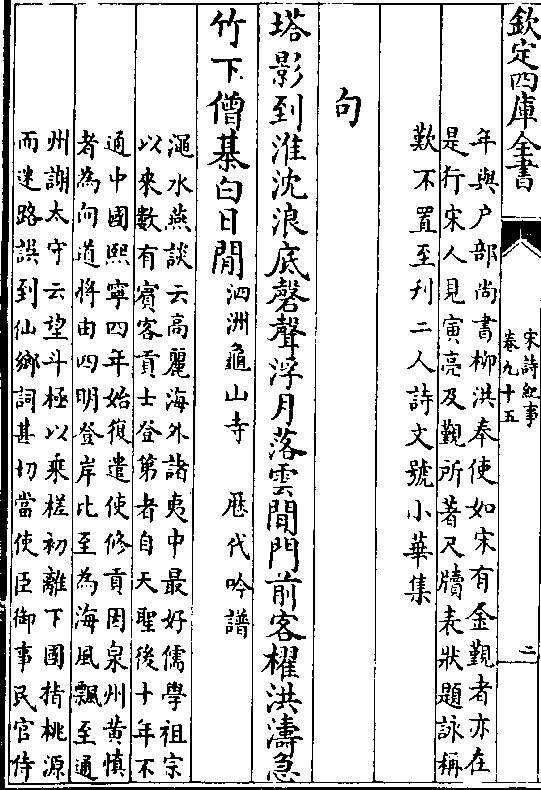 欽定四庫全書
宋詩紀事
卷九十五
二
年與户部尚書柳洪奉使如宋有金覲者亦在
是行宋人見寅亮及覲所著尺牘表狀題詠稱
歎不置至刋二人詩文號小華集
句
塔影到淮沈浪底磬聲浮月落雲間門前客櫂洪濤急
竹下僧棊白日閒泗洲龜山寺　厯代吟譜
澠水燕談云高麗海外諸夷中最好儒學祖宗
以來數有賓客貢士登第者自天聖後十年不
通中國熙寧四年始復遣使修貢因泉州黄慎
者為向道將由四明登岸比至為海風飄至通
州謝太守云望斗極以乘槎初離下國指桃源
而迷路誤到仙鄉詞甚切當使臣御事民官侍